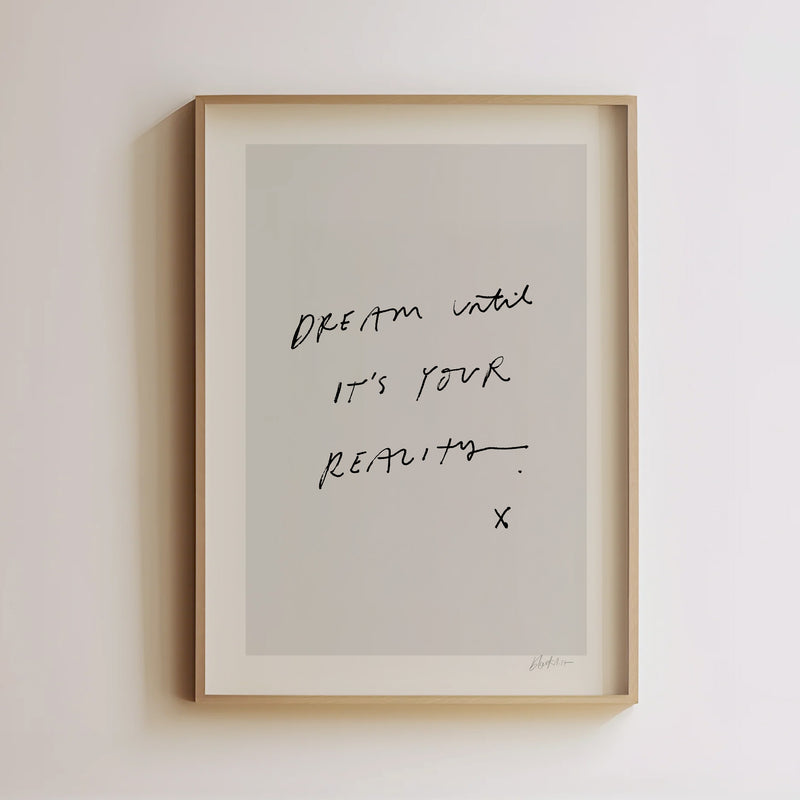 DREAM until
IT'S YOUR
REALITY.
x